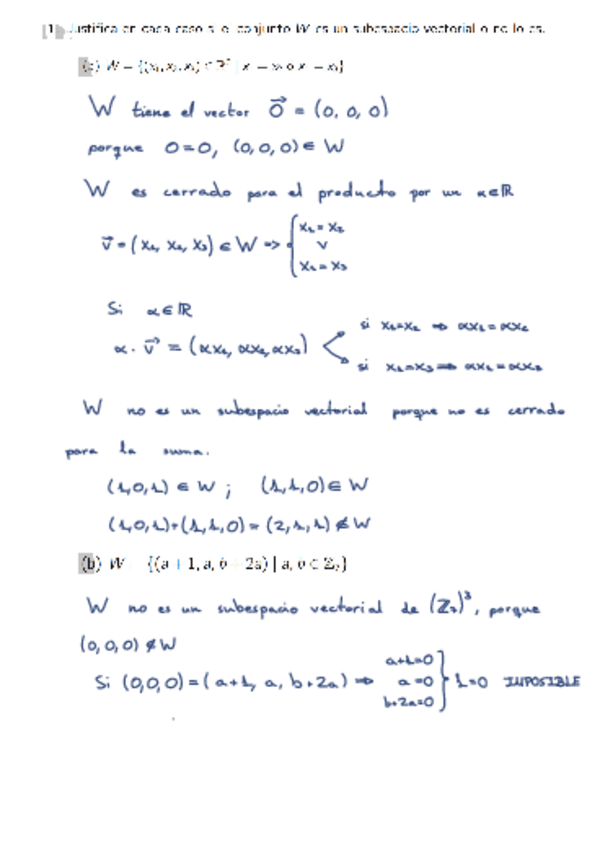 1. Justifica en cada caso si el conjunto W es un subespacio vectorial o no lo es.
(a) W = {(x₁, x₂, x₃) ∈ ℝ³ | x₁ = x₂ o x₁ = x₃}
W tiene el vector 0⃗ = (0, 0, 0)
porque 0=0, (0,0,0) ∈ W
W es cerrado para el producto por un α∈ℝ
v⃗ = (x₁, x₂, x₃) ∈ W => { x₁ = x₂ ∨ x₁ = x₃
Si α∈ℝ
α · v⃗ = (αx₁, αx₂, αx₃)
si x₁=x₂ => αx₁ = αx₂
si x₁=x₃ => αx₁ = αx₃
W no es un subespacio vectorial porque no es cerrado
para la suma.
(1,0,1) ∈ W ; (1,1,0) ∈ W
(1,0,1)+(1,1,0) = (2,1,1) ∉ W
(b) W = {(a + 1, a, b + 2a) | a, b ∈ ℤ₇}
W no es un subespacio vectorial de (ℤ₇)³, porque
(0,0,0) ∉ W
Si (0,0,0) = (a+1, a, b+2a) => a+1=0 a=0 b+2a=0 } 1=0 IMPOSIBLE